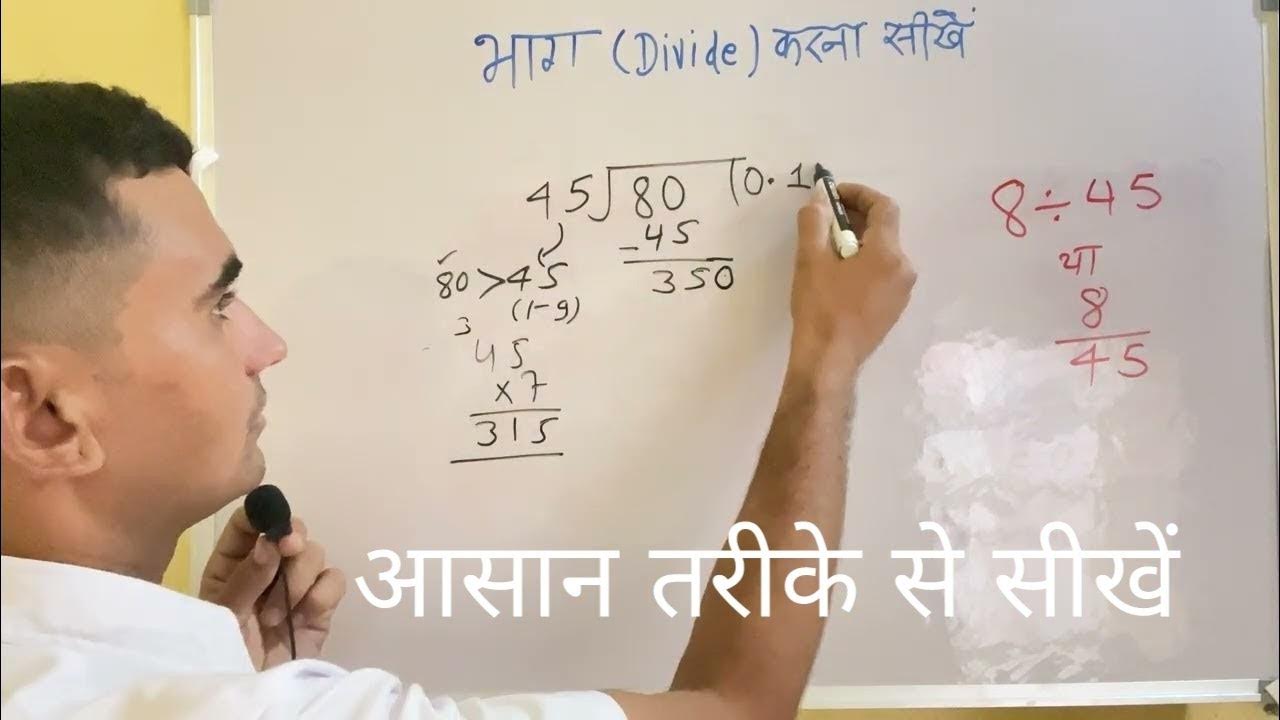 भाग (Divide) करना सीखें
45)80 (0.1
-45
350
80>45
(1-9)
3
45
x7
315
8÷45
या
8
45
आसान तरीके से सीखें